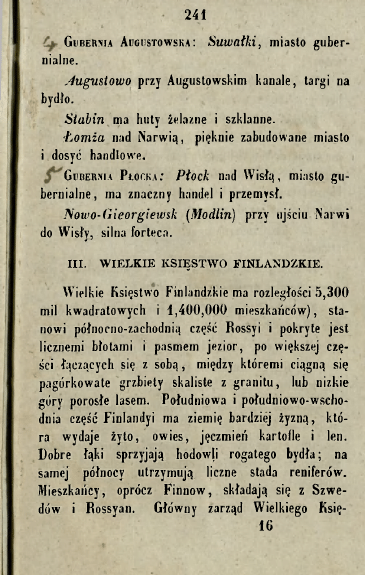 241
4 Gubernia Augustowska: Suwałki, miasto guber-
nialne.
Augustowo przy Augustowskim kanale, targi na
bydło.
Stabin ma huty żelazne i szklanne.
Łomża nad Narwią, pięknie zabudowane miasto
i dosyć handlowe.
5 Gubernia Płocka: Płock nad Wisłą, miasto gu-
bernialne, ma znaczny handel i przemysł.
Nowo-Gieorgiewsk (Modlin) przy ujściu Narwi
do Wisły, silna forteca.
III. WIELKIE KSIĘSTWO FINLANDZKIE.
Wielkie Księstwo Finlandzkie ma rozległości 5,300
mil kwadratowych i 1,400,000 mieszkańców), sta-
nowi północno-zachodnią część Rossyi i pokryte jest
licznemi błotami i pasmem jezior, po większej czę-
ści łączących się z sobą, między któremi ciągną się
pagórkowate grzbiety skaliste z granitu, lub nizkie
góry porosłe lasem. Południowa i południowo-wscho-
dnia część Finlandyi ma ziemię bardziej żyzną, któ-
ra wydaje żyto, owies, jęczmień kartofle i len.
Dobre łąki sprzyjają hodowli rogatego bydła; na
samej północy utrzymują liczne stada reniferów.
Mieszkańcy, oprócz Finnow, składają się z Szwe-
dów i Rossyan. Główny zarząd Wielkiego Księ-
16